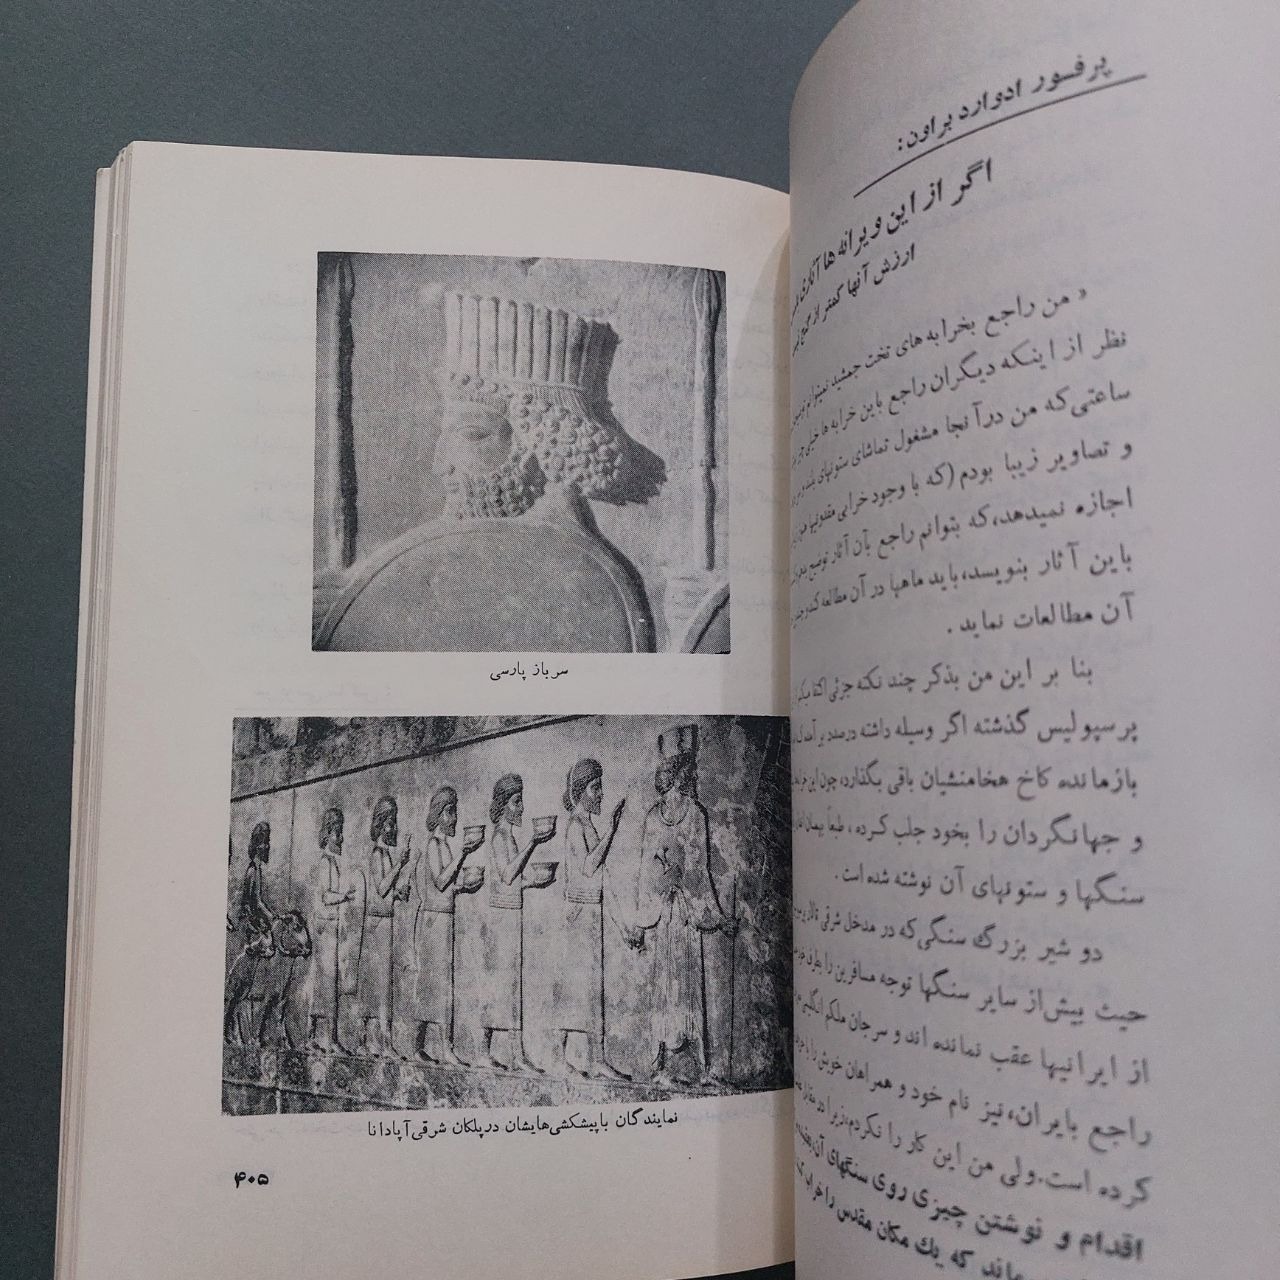 پرفسور ادوارد براون:
اگر از این ویرانه‌ها آثاری
ارزش آنها کمتر از گنج
« من راجع بخرابه های تخت جمشید نمیتوانم
نظر از اینکه دیگران راجع باین خرابه ها خیلی
ساعتی‌که من درآنجا مشغول تماشای ستونهای بلند و
و تصاویر زیبا بودم (که با وجود خرابی مقدونیها هنوز
اجازه نمیدهد،که بتوانم راجع بآن آثار توضیح بدهم
باین آثار بنویسد،باید ماهها در آن مطالعه کند و
آن مطالعات نماید .
بنا بر این من بذکر چند نکته جزئی اکتفا میکنم
پرسپولیس گذشته اگر وسیله داشته درصدد بر آمده
بازمانده کاخ هخامنشیان باقی بگذارد، چون این
و جهانگردان را بخود جلب کرده ، طبعاً بهمان
سنگها و ستونهای آن نوشته شده است .
دو شیر بزرگ سنگی‌که در مدخل شرقی تالار
حیث بیش‌از سایر سنگها توجه مسافرین را بطرف
از ایرانیها عقب نمانده اند و سرجان ملکم انگلیسی
راجع بایران، نیز نام خود و همراهان خویش را با
کرده است.ولی من این کار را نکردم،زیرا در مقابل
اقدام و نوشتن چیزی روی سنگهای آن
ماند که یك مکان مقدس را خراب
سرباز پارسی
نمایندگان با پیشکشی‌هایشان درپلکان شرقی آپادانا
۴۰۵